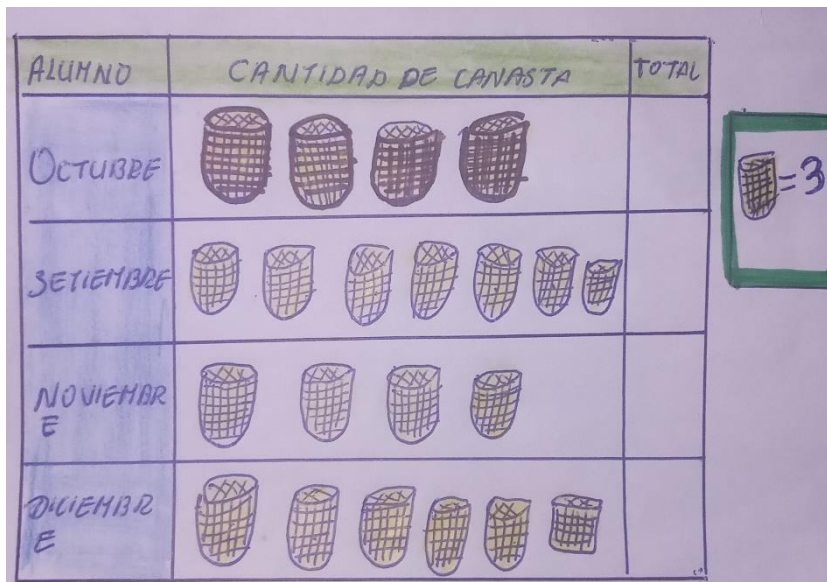 ALUMNO CANTIDAD DE CANASTA TOTAL
OCTUBRE
SETIEMBRE
NOVIEMBR
E
DICIEMBR
E
=3